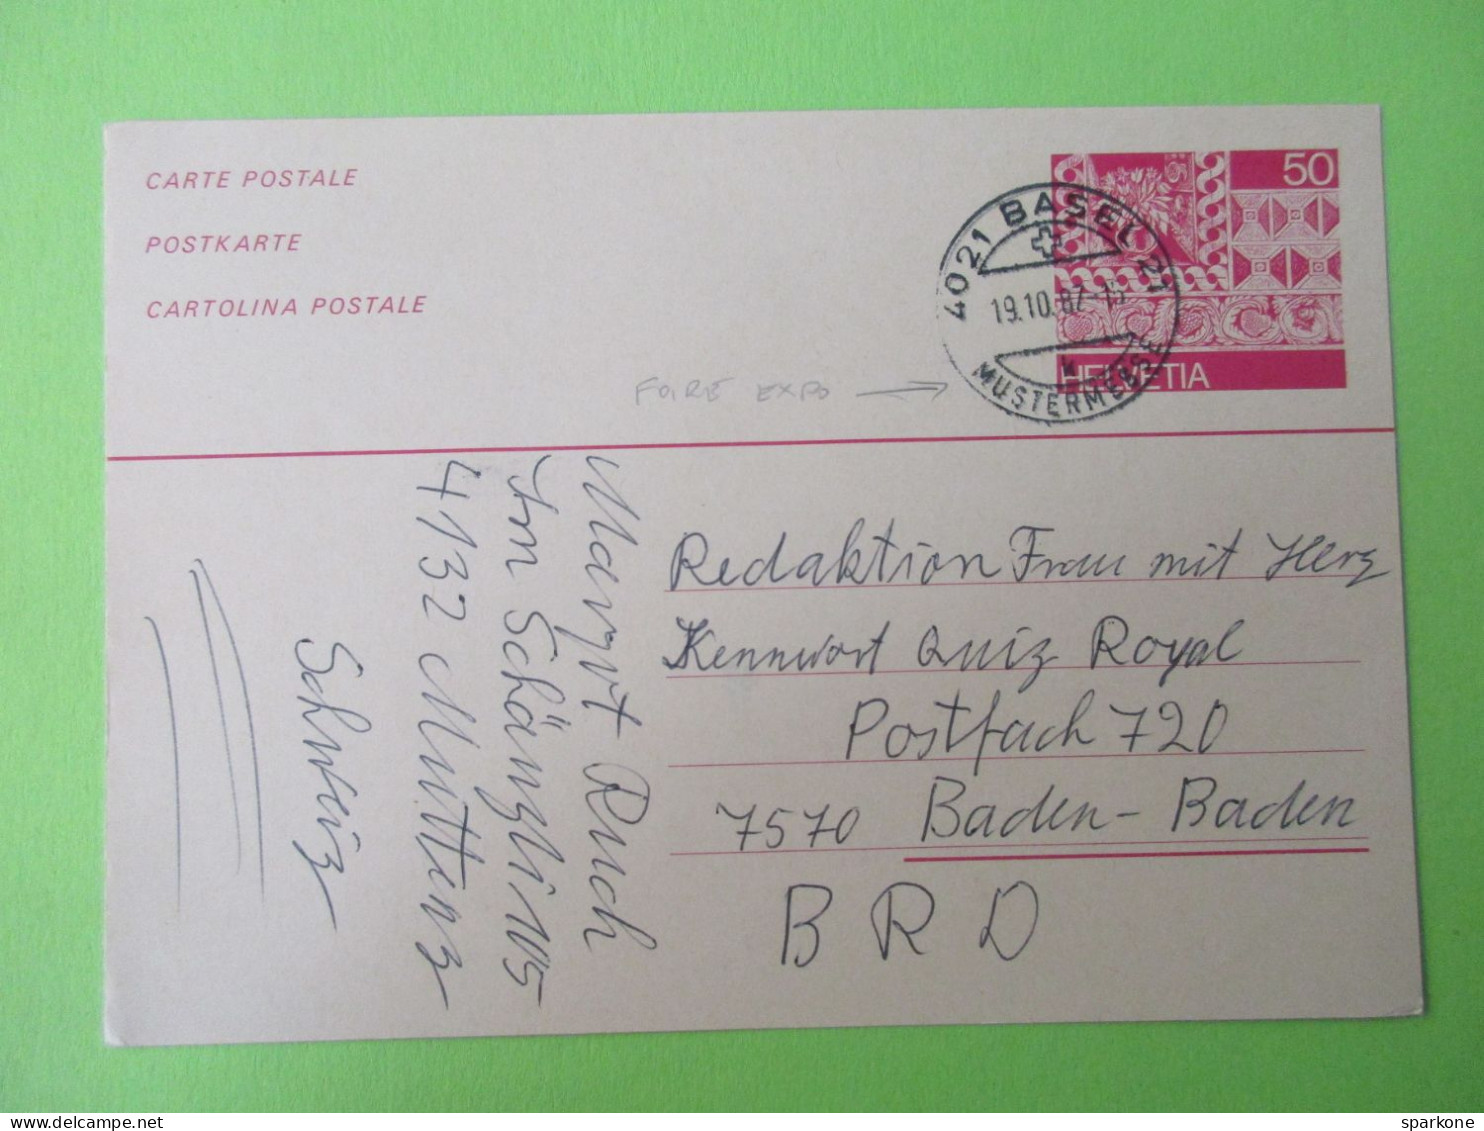 CARTE POSTALE
POSTKARTE
CARTOLINA POSTALE
50
HELVETIA
4021 BASEL 21
19.10.87-15
MUSTERMESSE
FOIRE EXPO
Redaktion Frau mit Herz
Kennwort Quiz Royal
Postfach 720
7570 Baden-Baden
B R D
Margrit Ruch
Im Schänzli 105
4132 Muttenz
Schweiz
www.delcampe.net
sparkone